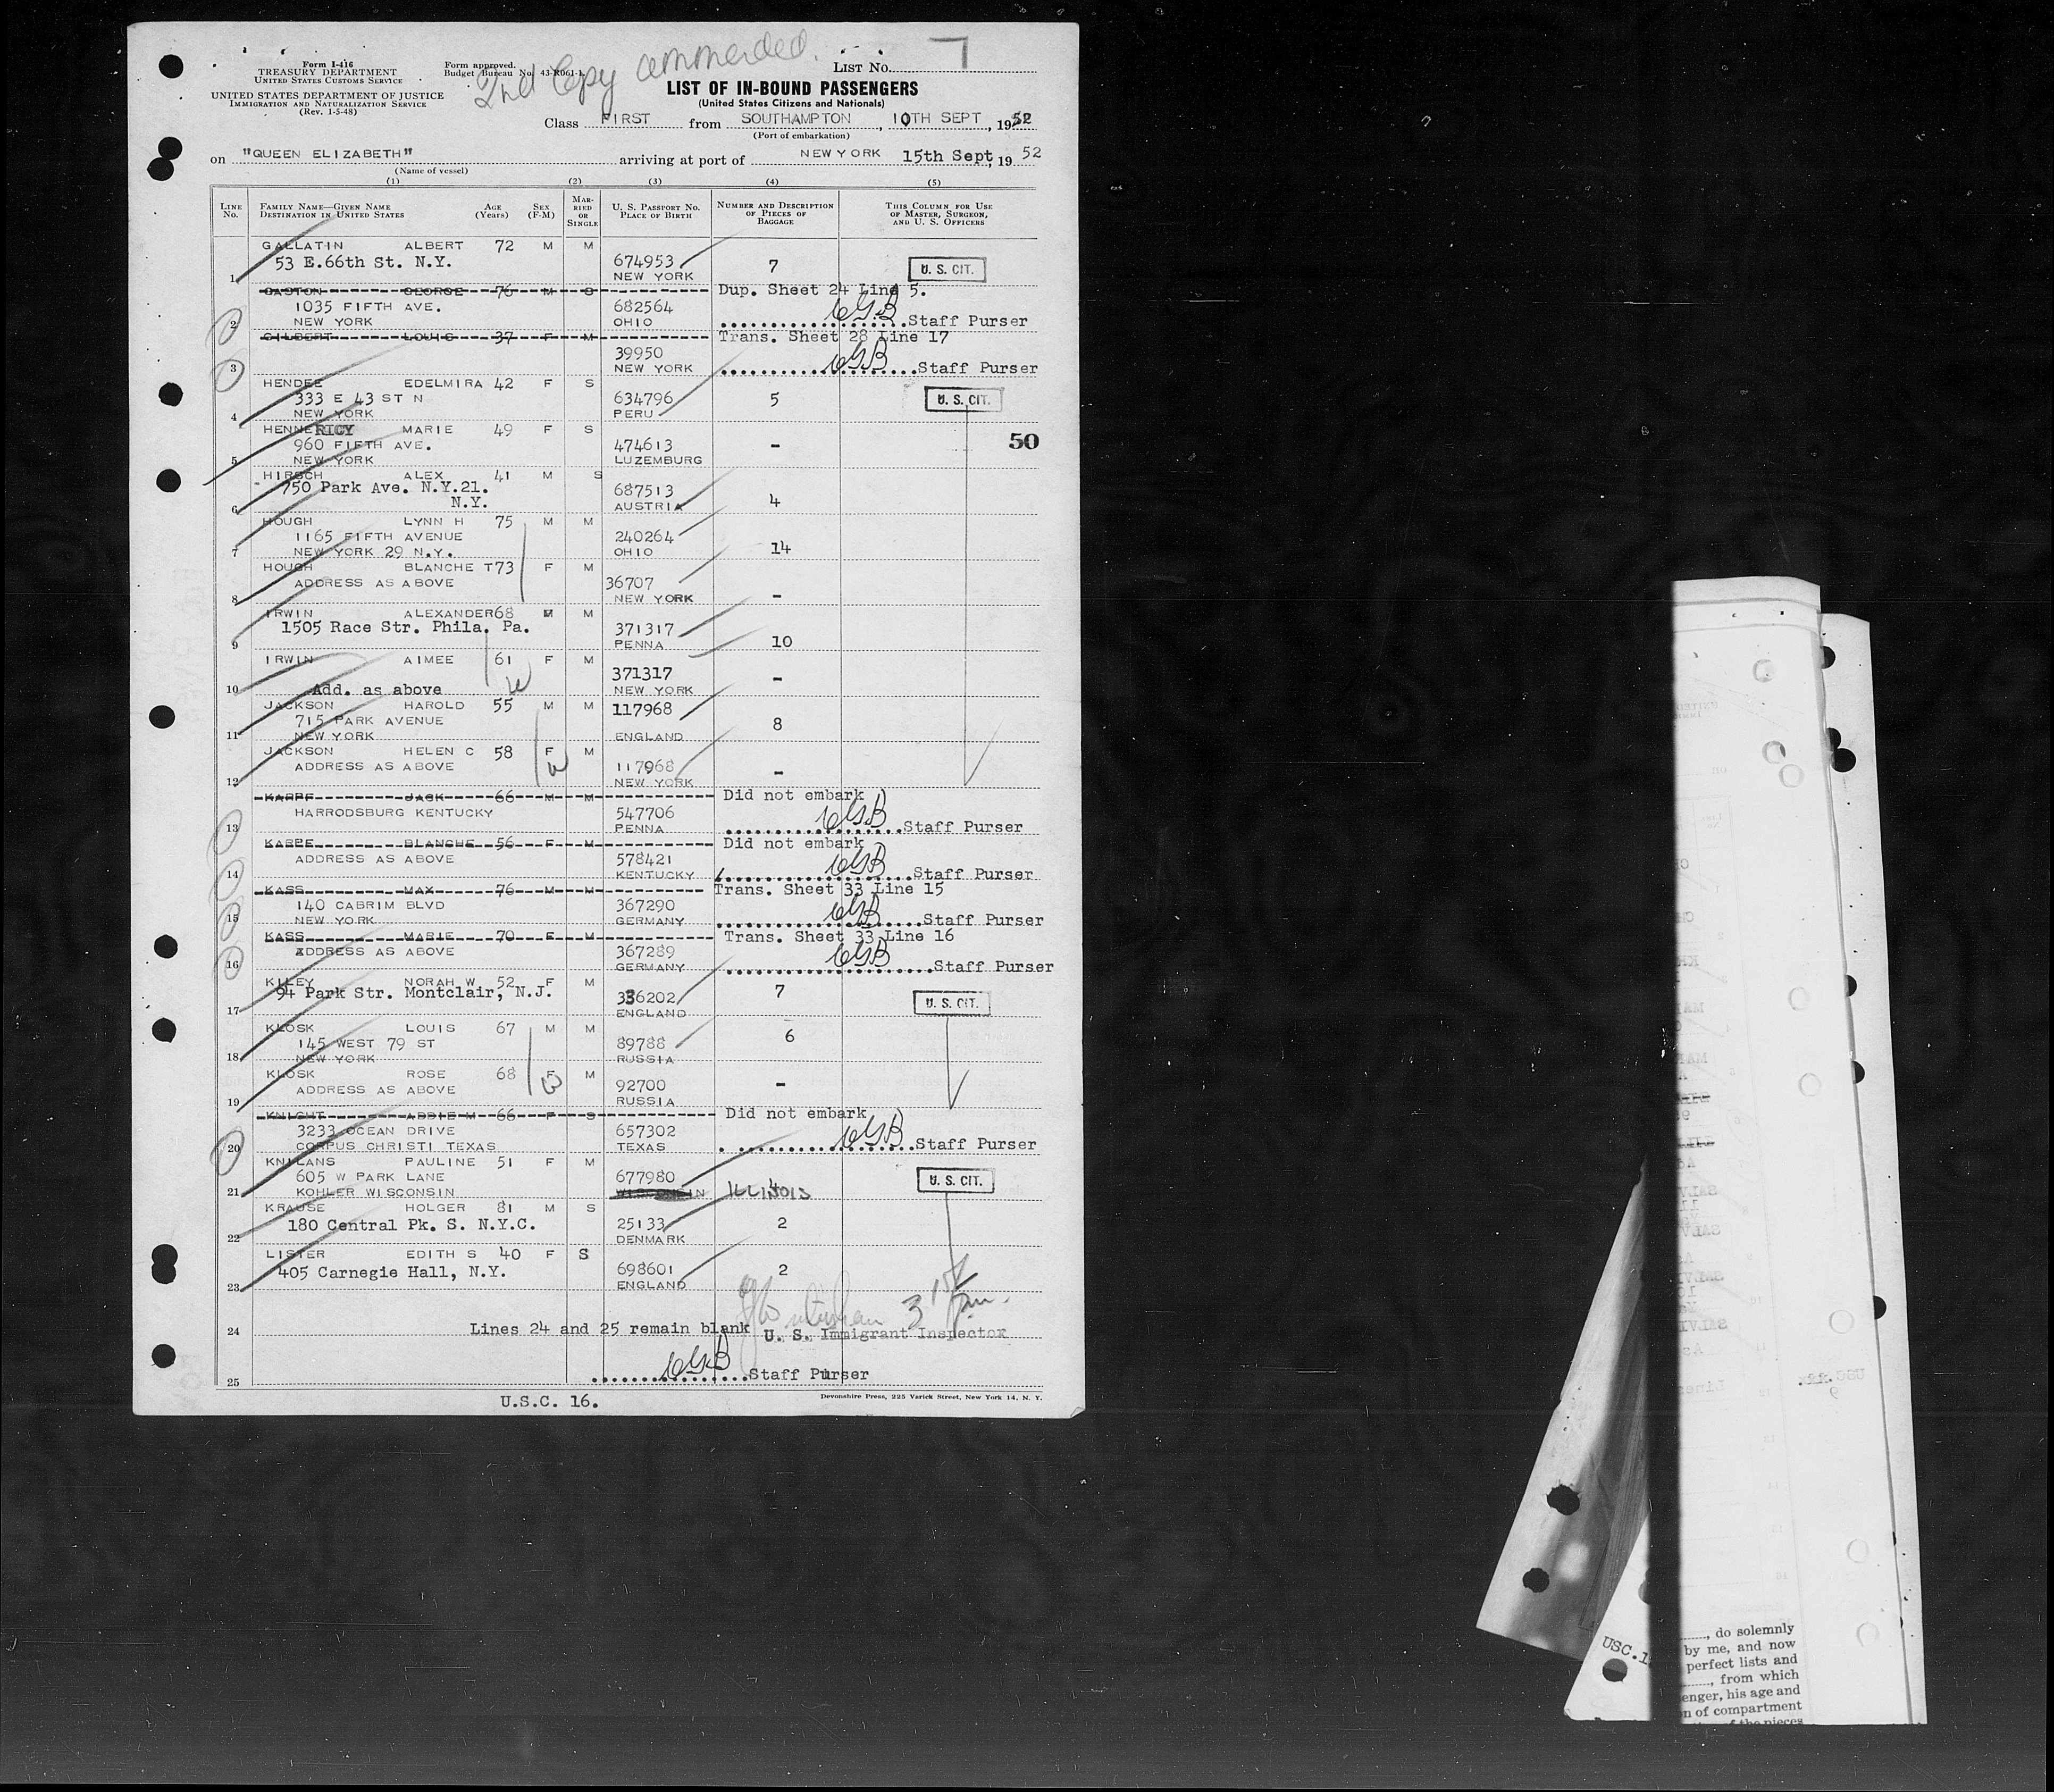 2nd Copy ammended.
Form I-416
TREASURY DEPARTMENT
UNITED STATES CUSTOMS SERVICE
UNITED STATES DEPARTMENT OF JUSTICE
IMMIGRATION AND NATURALIZATION SERVICE
(Rev. 1-5-48)
Form approved.
Budget Bureau No. 43-R061-1.
LIST No. 7
LIST OF IN-BOUND PASSENGERS
(United States Citizens and Nationals)
Class FIRST from SOUTHAMPTON, 10TH SEPT, 1952
(Port of embarkation)
on "QUEEN ELIZABETH" arriving at port of NEW YORK 15th Sept, 1952
(Name of vessel)
(1) (2) (3) (4) (5)
LINE No. FAMILY NAME—GIVEN NAME DESTINATION IN UNITED STATES AGE (Years) SEX (F-M) MARRIED OR SINGLE U. S. PASSPORT No. PLACE OF BIRTH NUMBER AND DESCRIPTION OF PIECES OF BAGGAGE THIS COLUMN FOR USE OF MASTER, SURGEON, AND U. S. OFFICERS
GALLATIN ALBERT 72 M M
53 E.66th St. N.Y. 674953 7 U. S. CIT.
1 NEW YORK
GASTON GEORGE 76 M S Dup. Sheet 24 Line 5.
1035 FIFTH AVE. 682564 CGB
2 NEW YORK OHIO Staff Purser
GILBERT LOUIS 37 F M Trans. Sheet 28 Line 17
39950 CGB
3 NEW YORK Staff Purser
HENDEE EDELMIRA 42 F S
333 E 43 ST N 634796 5 U. S. CIT.
4 NEW YORK PERU
HENNERICY MARIE 49 F S 50
960 FIFTH AVE. 474613 -
5 NEW YORK LUZEMBURG
HIRSCH ALEX 41 M S
750 Park Ave. N.Y.21. 687513 4
6 N.Y. AUSTRIA
HOUGH LYNN H 75 M M
1165 FIFTH AVENUE 240264 14
7 NEW YORK 29 N.Y. OHIO
HOUGH BLANCHE T 73 F M
ADDRESS AS ABOVE 36707 -
8 NEW YORK
IRWIN ALEXANDER 68 M M
1505 Race Str. Phila. Pa. 371317 10
9 PENNA
IRWIN AIMEE 61 F M
371317 -
10 Add. as above NEW YORK
JACKSON HAROLD 55 M M 117968
715 PARK AVENUE 8
11 NEW YORK ENGLAND
JACKSON HELEN C 58 F M
ADDRESS AS ABOVE 117968 -
12 NEW YORK
KARPF JACK 66 M M Did not embark
HARRODSBURG KENTUCKY 547706 CGB
13 PENNA Staff Purser
KARPF BLANCHE 56 F M Did not embark
ADDRESS AS ABOVE 578421 CGB
14 KENTUCKY Staff Purser
KASS MAX 76 M M Trans. Sheet 33 Line 15
140 CABRIM BLVD 367290 CGB
15 NEW YORK GERMANY Staff Purser
KASS MARIE 70 F M Trans. Sheet 33 Line 16
ADDRESS AS ABOVE 367289 CGB
16 GERMANY Staff Purser
KILEY NORAH W 52 F M
94 Park Str. Montclair, N.J. 336202 7 U. S. CIT.
17 ENGLAND
KLOSK LOUIS 67 M M
145 WEST 79 ST 89788 6
18 NEW YORK RUSSIA
KLOSK ROSE 68 F M
ADDRESS AS ABOVE 92700 -
19 RUSSIA
KNIGHT ADDIE M 66 F S Did not embark
3233 OCEAN DRIVE 657302 CGB
20 CORPUS CHRISTI TEXAS TEXAS Staff Purser
KNILANS PAULINE 51 F M
605 W PARK LANE 677980 4 U. S. CIT.
21 KOHLER WISCONSIN WISCONSIN ILLINOIS
KRAUSE HOLGER 81 M S
180 Central Pk. S. N.Y.C. 25133 2
22 DENMARK
LISTER EDITH S 40 F S
405 Carnegie Hall, N.Y. 698601 2
23 ENGLAND
24 Lines 24 and 25 remain blank U. S. Immigrant Inspector
CGB
25 Staff Purser
U.S.C. 16.
Devonshire Press, 225 Varick Street, New York 14, N. Y.
USC.1
, do solemnly
by me, and now
perfect lists and
, from which
enger, his age and
n of compartment
of the pieces